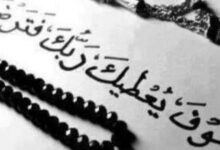 وف يُعْطِيكَ رَبُّكَ فَتَرْضَ